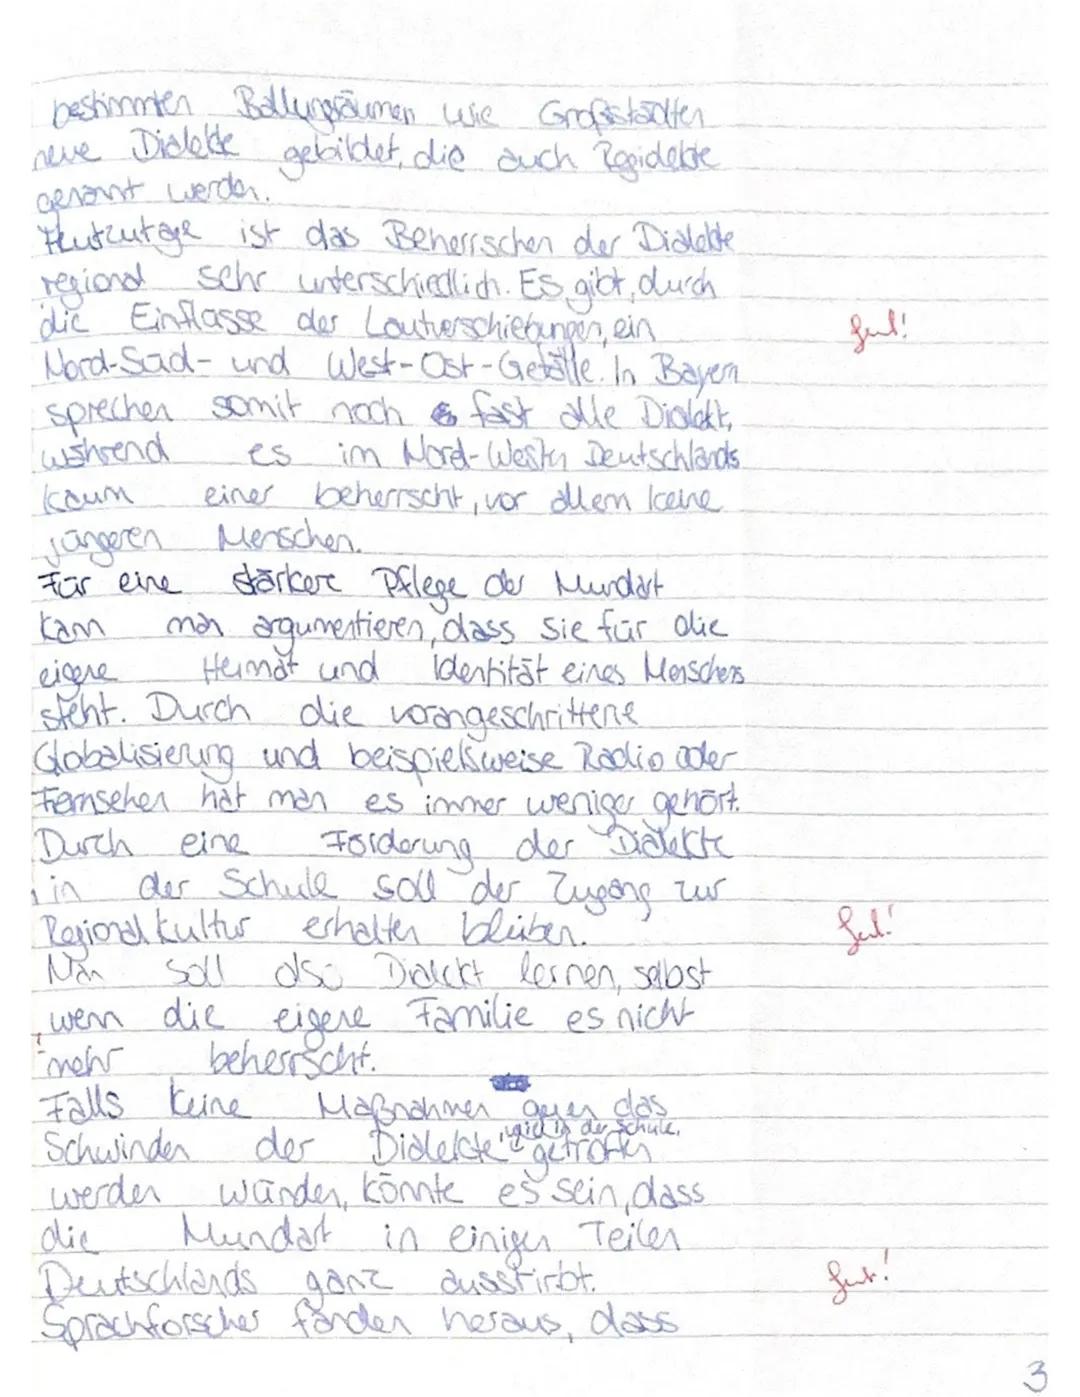 bestimmten Ballungsräumen wie Großstädten
neue Dialekte gebildet, die auch Regidekte
genannt werden.
Heutzutage ist das Beherrschen der Dialekte
regional sehr unterschiedlich. Es gibt, durch
die Einflüsse der Lautverschiebungen, ein
gut!
Nord-Süd- und West-Ost-Gefälle. In Bayern
sprechen somit noch fast alle Dialekt,
während es im Nord-Westen Deutschlands
kaum einer beherrscht, vor allem keine
jüngeren Menschen.
Für eine stärkere Pflege der Mundart
kann man argumentieren, dass sie für die
eigene Heimat und Identität eines Menschens
steht. Durch die vorangeschrittene
Globalisierung und beispielsweise Radio oder
Fernsehen hat man es immer weniger gehört.
Durch eine Förderung der Dialekte
in der Schule soll der Zugang zur
Regionalkultur erhalten bleiben.
gut!
Man soll also Dialekt lernen, selbst
wenn die eigene Familie es nicht
mehr beherrscht.
Falls keine Maßnahmen gegen das
Schwinden der Dialekte, wie in der Schule, getroffen
werden würden, könnte es sein, dass
die Mundart in einigen Teilen
Deutschlands ganz ausstirbt.
gut!
Sprachforscher fanden heraus, dass
3